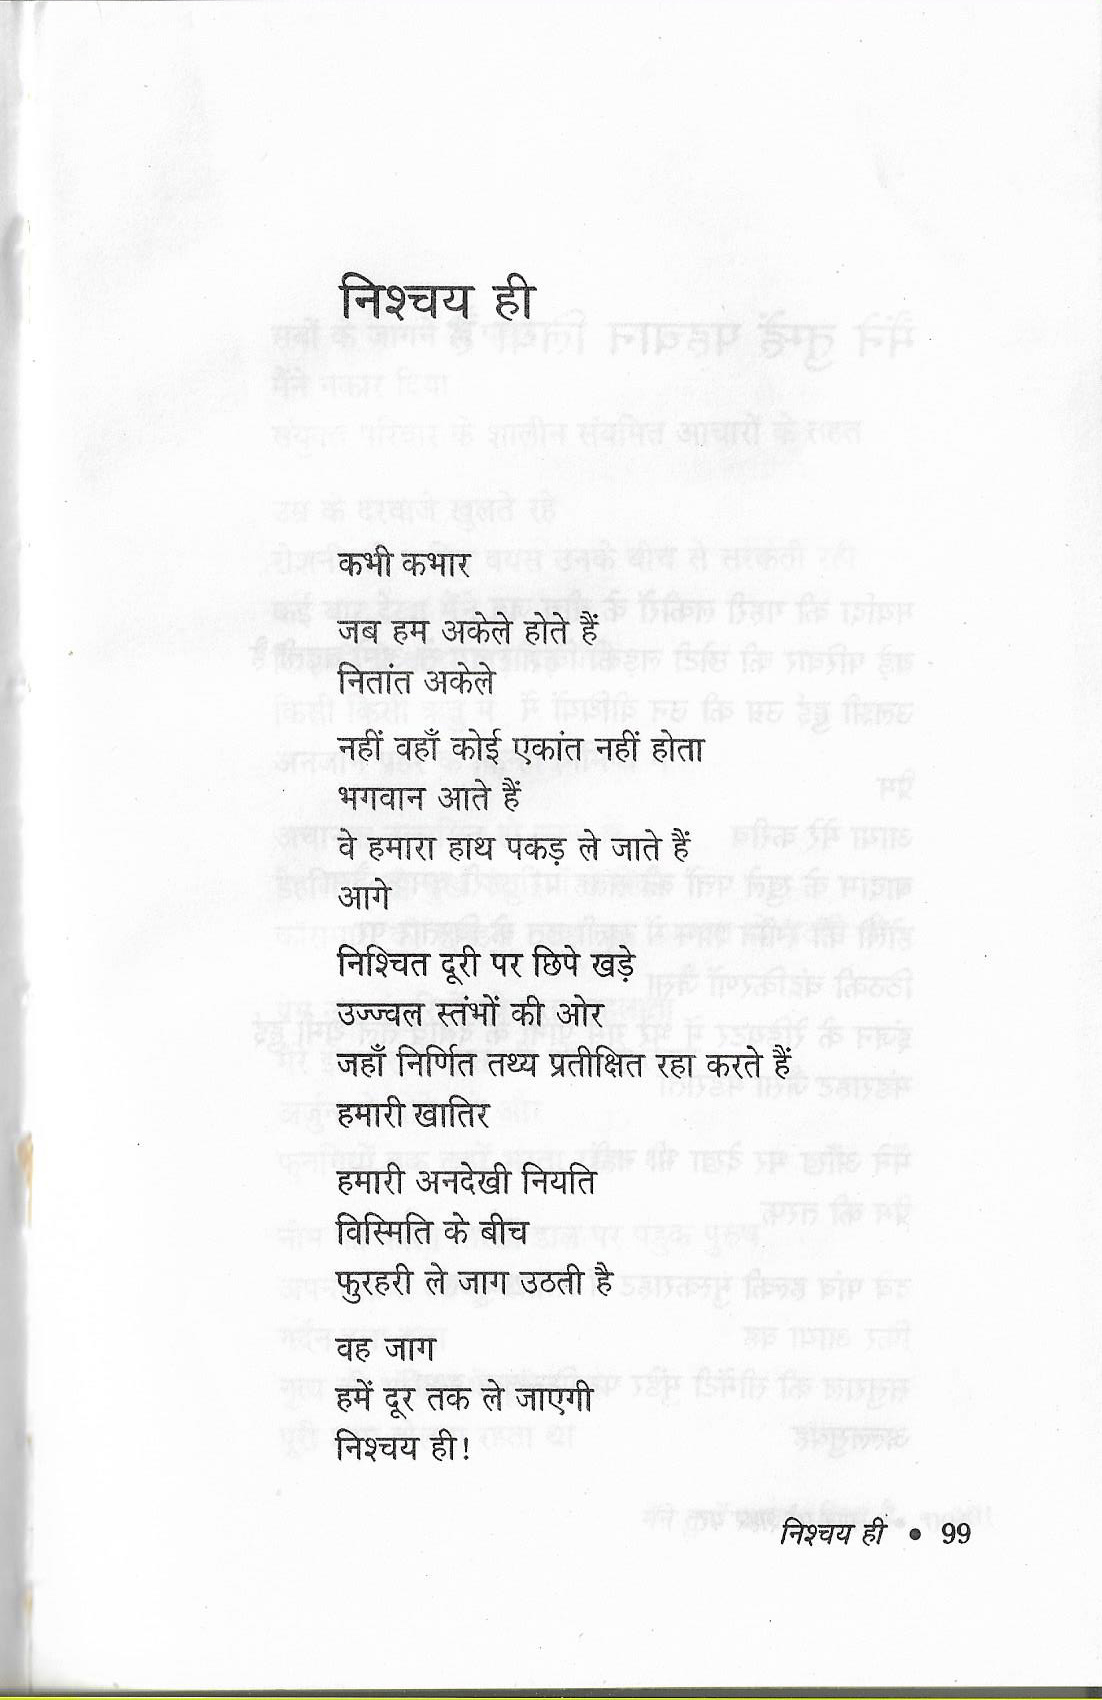 निश्चय ही
कभी कभार
जब हम अकेले होते हैं
नितांत अकेले
नहीं वहाँ कोई एकांत नहीं होता
भगवान आते हैं
वे हमारा हाथ पकड़ ले जाते हैं
आगे
निश्चित दूरी पर छिपे खड़े
उज्ज्वल स्तंभों की ओर
जहाँ निर्णित तथ्य प्रतीक्षित रहा करते हैं
हमारी खातिर
हमारी अनदेखी नियति
विस्मिति के बीच
फुरहरी ले जाग उठती है
वह जाग
हमें दूर तक ले जाएगी
निश्चय ही!
निश्चय ही • 99